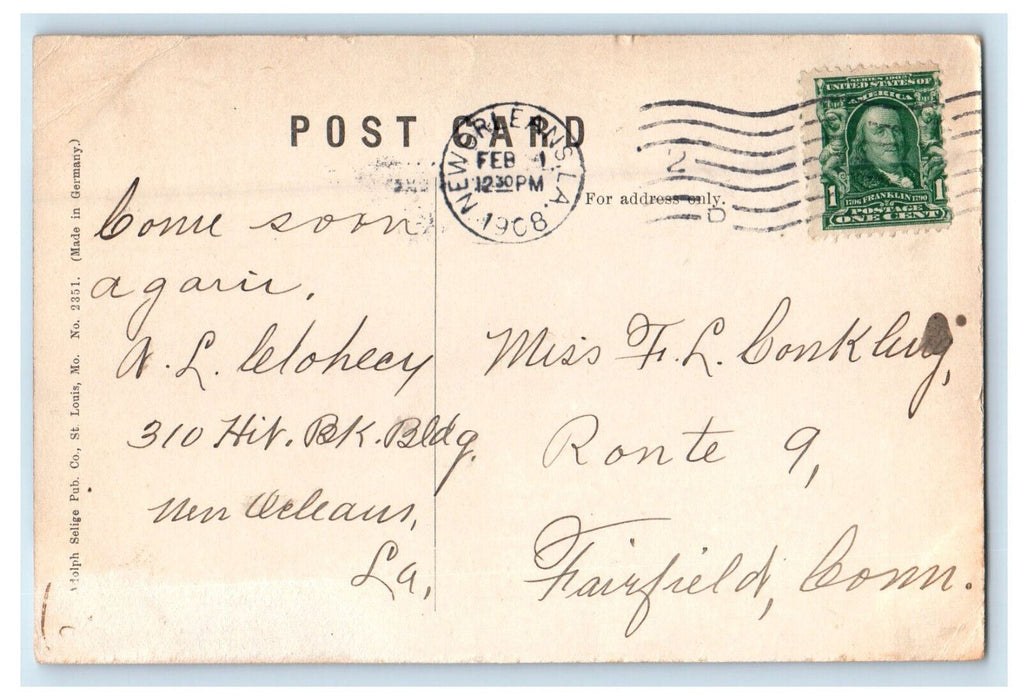 POST CARD
NEW ORLEANS, LA.
FEB 1
12 30 PM
1908
2
D
For address only.
SERIES 1902
UNITED STATES OF
AMERICA
1 1706 FRANKLIN 1790 1
POSTAGE
ONE CENT
Come soon
again.
L.
310 Hib. Bk. Bldg.
New Orleans,
La,
Miss F. L. Conkling,
Route 9,
Fairfield, Conn.
Adolph Selige Pub. Co., St. Louis, Mo. No. 2351. (Made in Germany.)